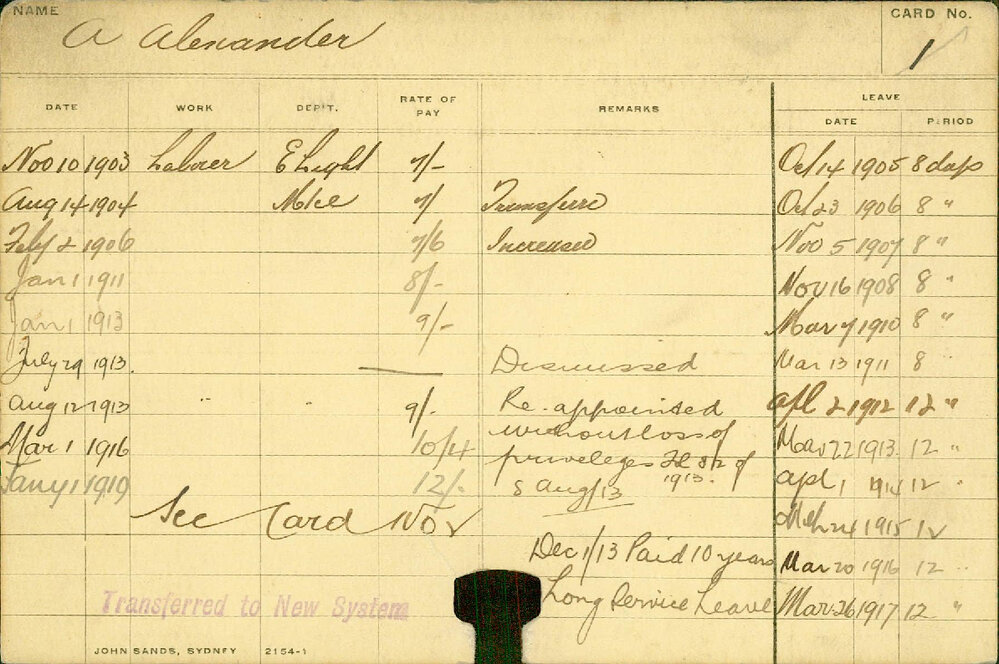 NAME A Alexander CARD No. 1
DATE WORK DEP'T. RATE OF PAY REMARKS LEAVE
DATE PERIOD
Nov 10 1903 Laborer E Light 7/- Oct 14 1905 8 days
Aug 14 1904 Mce 7/ Transferre Oct 23 1906 8 "
Feby 2 1906 7/6 Increased Nov 5 1907 8 "
Jan 1 1911 8/- Nov 16 1908 8 "
Jan 1 1913 9/- Mar 7 1910 8 "
July 29 1913. Dismissed Mar 13 1911 8 "
Aug 12 1913 " " 9/- Re-appointed Apl 2 1912 12 "
Mar 1 1916 10/4 without loss of Mar 22 1913. 12 "
privileges of
Jany 1 1919 12/- 8 Aug/13 1913. Apl 1 1914 12 "
See Card No 2 Mch 24 1915 12
Dec 1/13 Paid 10 years Mar 20 1916 12 "
Long Service Leave Mar 26 1917 12 "
Transferred to New System
JOHN SANDS, SYDNEY 2154-1